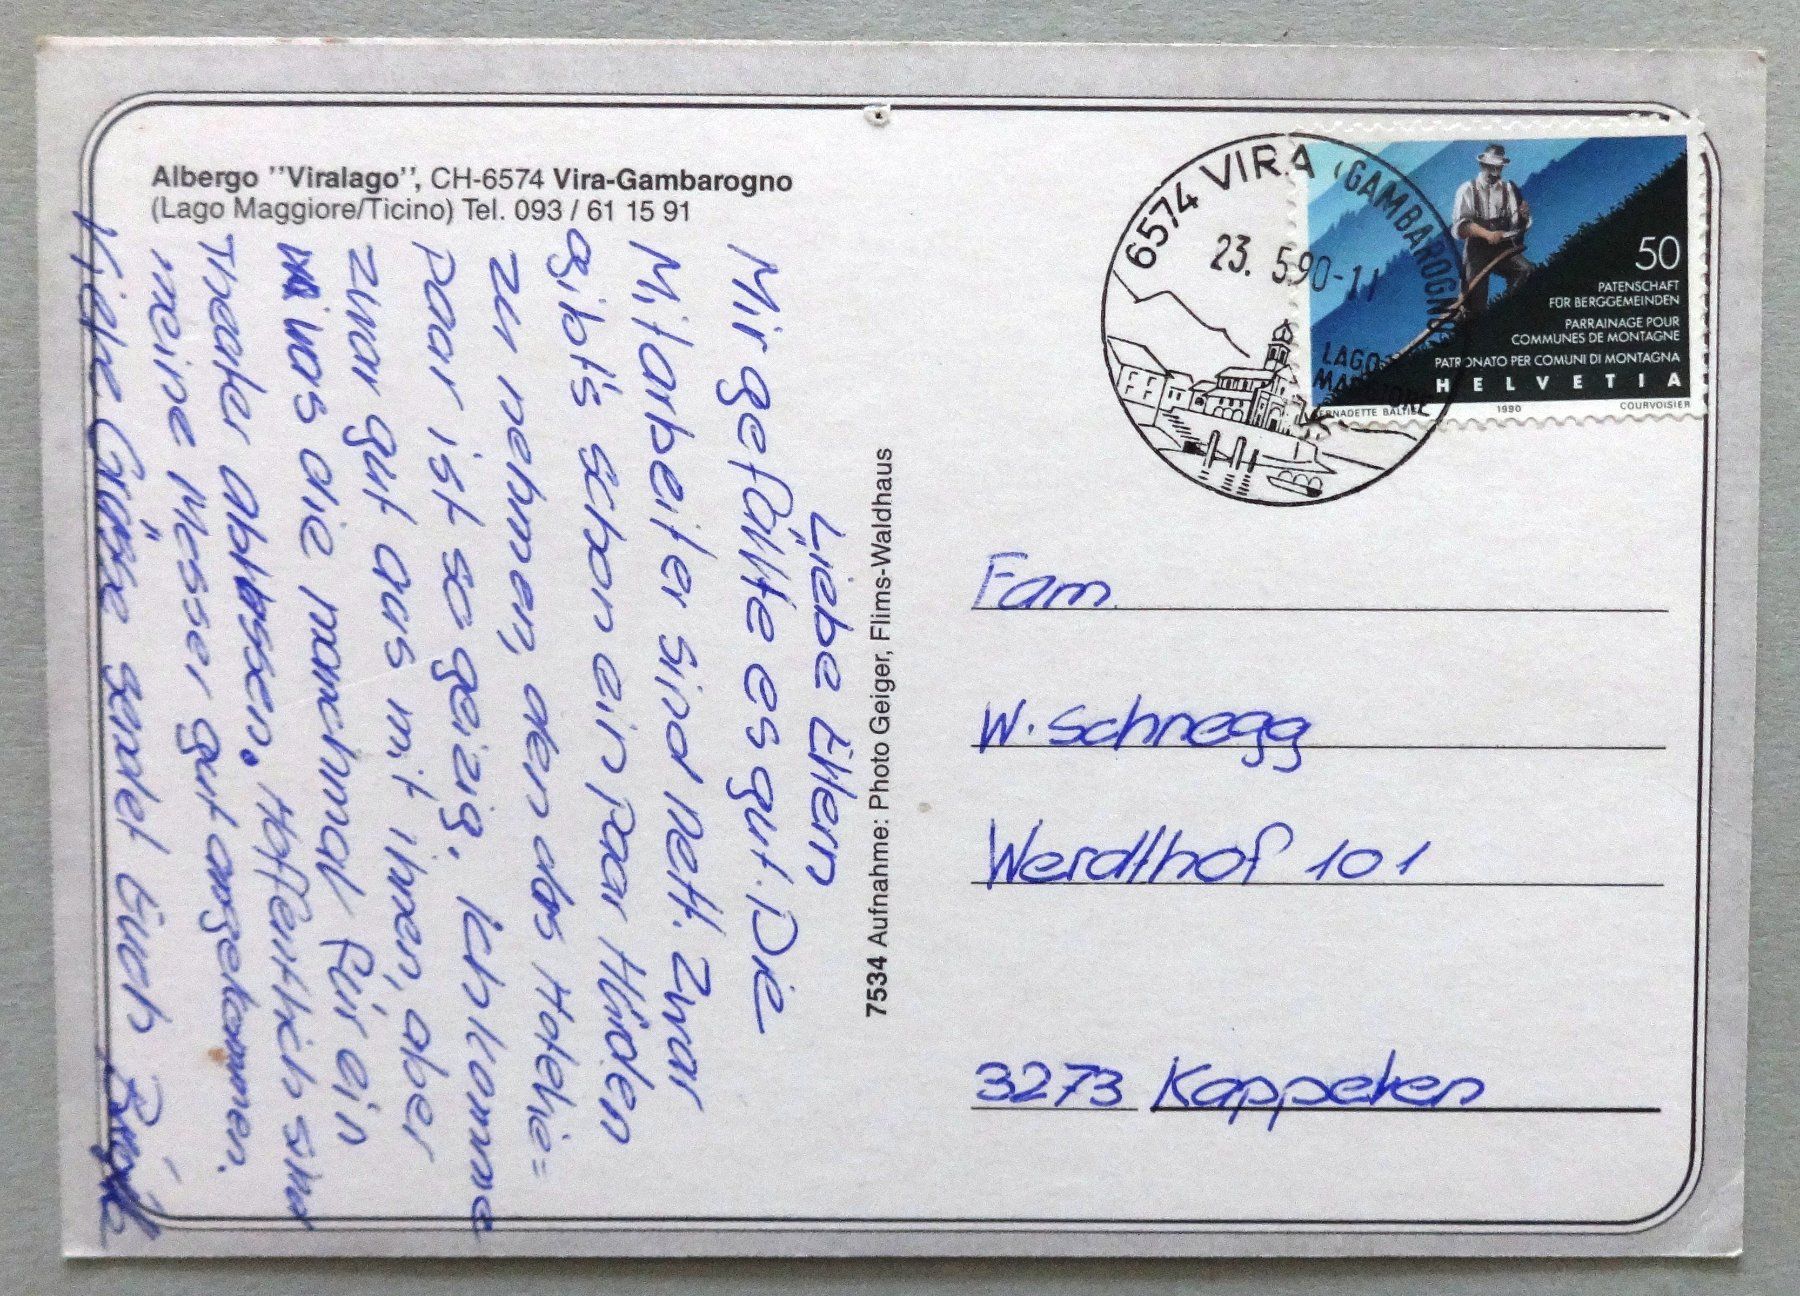 Albergo "Viralago", CH-6574 Vira-Gambarogno
(Lago Maggiore/Ticino) Tel. 093 / 61 15 91
Liebe Eltern
Mir gefällte es gut. Die
Mitarbeiter sind nett. Zwar
gibt's schon ein paar Hürden
zu nehmen, den das Hotelie=
paar ist so geizig. Ich komme
zwar gut aus mit ihnen, aber
was die manchmal für ein
Theater ablassen. Hoffentlich sind
meine Messer gut angekommen.
Liebe Grüsse sendet Euch
7534 Aufnahme: Photo Geiger, Flims-Waldhaus
6574 VIRA (GAMBAROGNO)
23. 5.90-11
LAGO
MAGGIORE
50
PATENSCHAFT
FÜR BERGGEMEINDEN
PARRAINAGE POUR
COMMUNES DE MONTAGNE
PATRONATO PER COMUNI DI MONTAGNA
HELVETIA
BERNADETTE BALTIS 1990 COURVOISIER
Fam.
W. Schnegg
Werdthof 101
3273 Kappelen